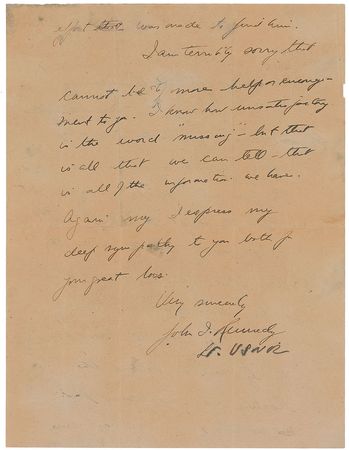 effort was made to find him.
I am terribly sorry that
I cannot be of more help or encourage-
ment to you. I know how unsatisfactory
is the word "missing" - but that
is all that we can tell - that
is all of the information we have.
Again may I express my
deep sympathy to you both for
your great loss.
Very sincerely
John F. Kennedy
Lt. USNR